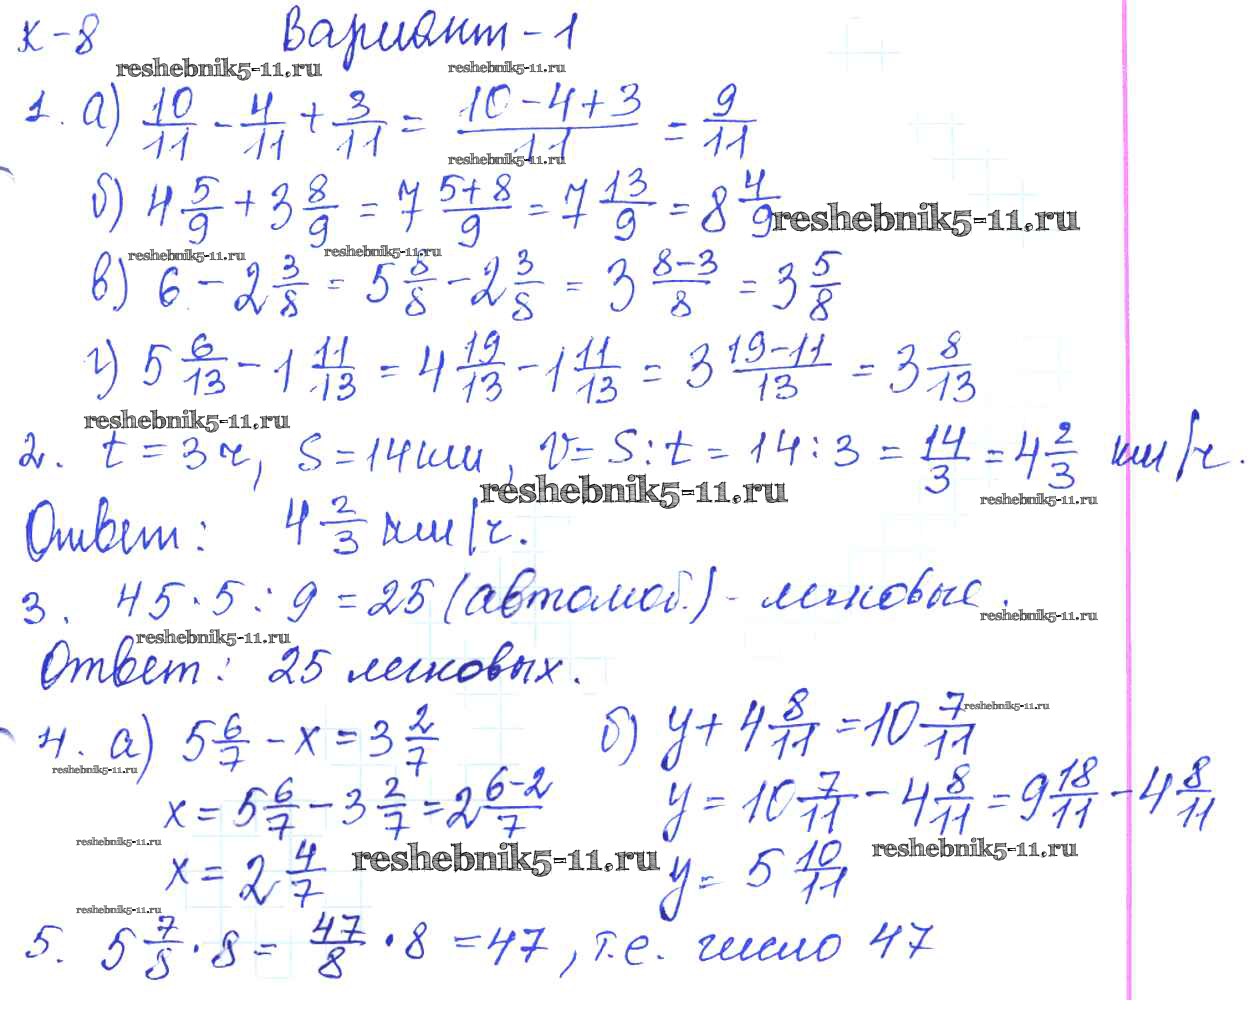 К-8 Вариант-1
reshebnik5-11.ru reshebnik5-11.ru
1. а) 10/11 - 4/11 + 3/11 = (10-4+3)/11 = 9/11
reshebnik5-11.ru
б) 4 5/9 + 3 8/9 = 7 (5+8)/9 = 7 13/9 = 8 4/9
reshebnik5-11.ru
reshebnik5-11.ru reshebnik5-11.ru
в) 6 - 2 3/8 = 5 8/8 - 2 3/8 = 3 (8-3)/8 = 3 5/8
г) 5 6/13 - 1 11/13 = 4 19/13 - 1 11/13 = 3 (19-11)/13 = 3 8/13
reshebnik5-11.ru
2. t = 3 ч, S = 14 км, v = S : t = 14 : 3 = 14/3 = 4 2/3 км/ч.
reshebnik5-11.ru reshebnik5-11.ru
Ответ: 4 2/3 км/ч.
3. 45 · 5 : 9 = 25 (автомоб.) - легковые.
reshebnik5-11.ru reshebnik5-11.ru
Ответ: 25 легковых.
4. а) 5 6/7 - x = 3 2/7 б) y + 4 8/11 = 10 7/11
reshebnik5-11.ru
reshebnik5-11.ru
x = 5 6/7 - 3 2/7 = 2 (6-2)/7 y = 10 7/11 - 4 8/11 = 9 18/11 - 4 8/11
reshebnik5-11.ru reshebnik5-11.ru reshebnik5-11.ru
x = 2 4/7 y = 5 10/11
reshebnik5-11.ru
5. 5 7/8 · 8 = 47/8 · 8 = 47, т.е. число 47